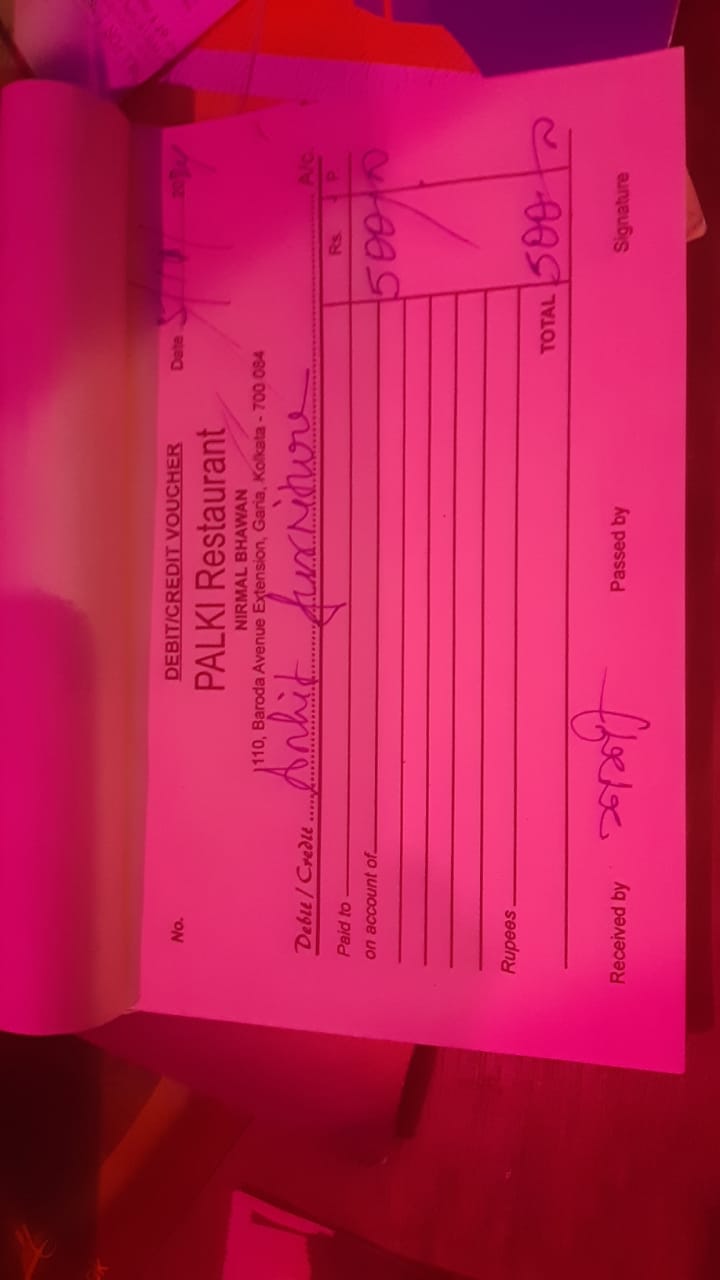 DEBIT/CREDIT VOUCHER
No.
Date 5/11/2024
PALKI Restaurant
NIRMAL BHAWAN
110, Baroda Avenue Extension, Garia, Kolkata - 700 084
Debit / Credit Ankit furniture A/c.
Rs. P.
Paid to
on account of 500/-
Rupees
TOTAL 500/-
Received by
Passed by
Signature